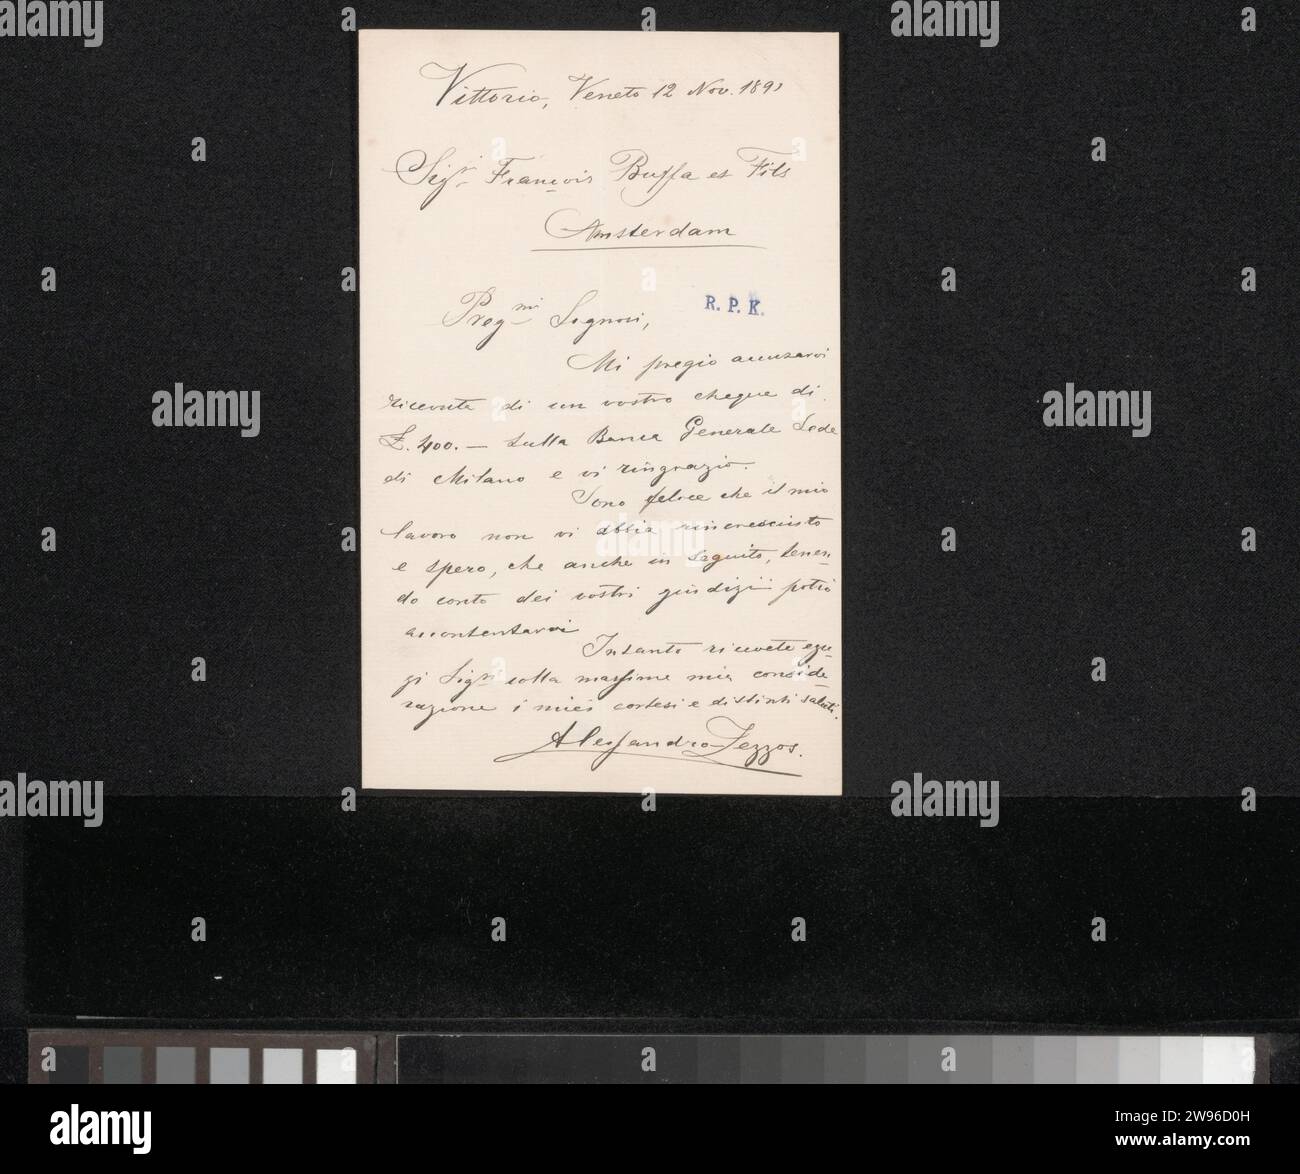 Vittorio, Veneto 12 Nov. 189
Sigri François Buffa et Fils
Amsterdam
Pregmi Signori,
R. P. K.
Mi pregio accusarvi
ricevuta di un vostro cheque di
£. 400.— sulla Banca Generale Sede
di Milano e vi ringrazio.
Sono felice che il mio
lavoro non vi abbia rincresciuto
e spero, che anche in seguito, tenen-
do conto dei vostri giudizii potrò
accontentarvi
Intanto ricevete egre-
gi Sigri colla massima mia conside-
razione i miei cortesi e distinti saluti.
Alessandro Zezzos.
alamy
Image ID: 2W96D0H
www.alamy.com